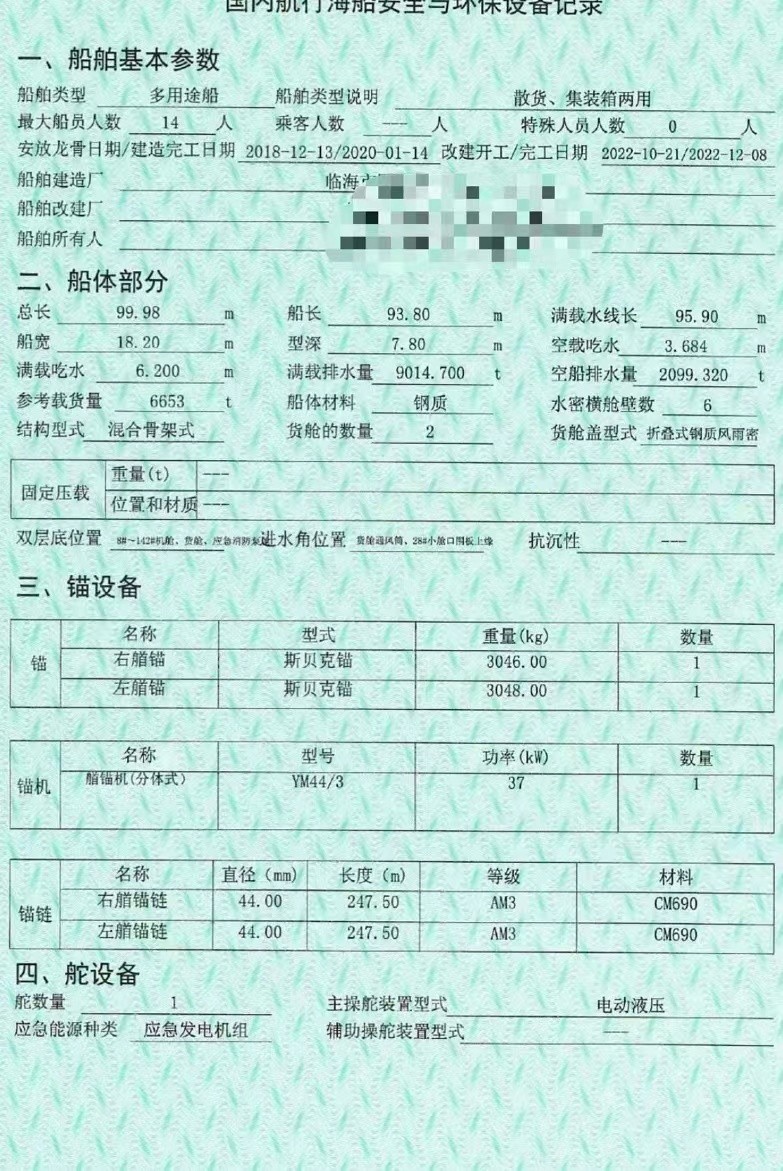 国内航行海船安全与环保设备记录
一、船舶基本参数
船舶类型 多用途船 船舶类型说明 散货、集装箱两用
最大船员人数 14 人 乘客人数 --- 人 特殊人员人数 0 人
安放龙骨日期/建造完工日期 2018-12-13/2020-01-14 改建开工/完工日期 2022-10-21/2022-12-08
船舶建造厂 临海市
船舶改建厂
船舶所有人
二、船体部分
总长 99.98 m 船长 93.80 m 满载水线长 95.90 m
船宽 18.20 m 型深 7.80 m 空载吃水 3.684 m
满载吃水 6.200 m 满载排水量 9014.700 t 空船排水量 2099.320 t
参考载货量 6653 t 船体材料 钢质 水密横舱壁数 6
结构型式 混合骨架式 货舱的数量 2 货舱盖型式 折叠式钢质风雨密
固定压载 重量(t) ---
位置和材质 ---
双层底位置 8#~142#机舱、货舱、应急消防泵 进水角位置 货舱通风筒、28#小舱口围板上缘 抗沉性 ---
三、锚设备
锚 名称 型式 重量(kg) 数量
右艏锚 斯贝克锚 3046.00 1
左艏锚 斯贝克锚 3048.00 1
锚机 名称 型号 功率(kW) 数量
艏锚机(分体式) YM44/3 37 1
锚链 名称 直径(mm) 长度(m) 等级 材料
右艏锚链 44.00 247.50 AM3 CM690
左艏锚链 44.00 247.50 AM3 CM690
四、舵设备
舵数量 1 主操舵装置型式 电动液压
应急能源种类 应急发电机组 辅助操舵装置型式 ---